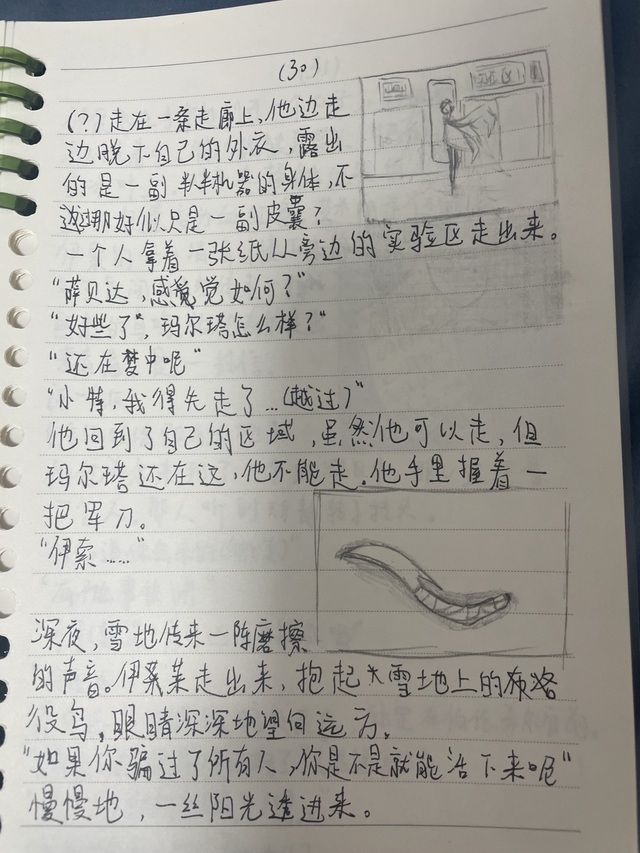 (30)
(?)走在一条走廊上,他边走
边脱下自己的外衣,露出
的是一副半机器的身体,不
过那好似只是一副皮囊?
一个人拿着一张纸从旁边的实验区走出来。
“薛贝达,感觉如何?”
“好些了”,玛尔塔怎么样?”
“还在梦中呢”
“小特,我得先走了...(越过)”
他回到了自己的区域,虽然他可以走,但
玛尔塔还在这,他不能走.他手里握着一
把军刀。
“伊索……”
深夜,雪地传来一阵磨擦
的声音。伊莱走出来,抱起雪地上的布洛
役鸟,眼睛深深地望向远方.
“如果你骗过了所有人,你是不是就能活下来呢”
慢慢地,一丝阳光透进来。